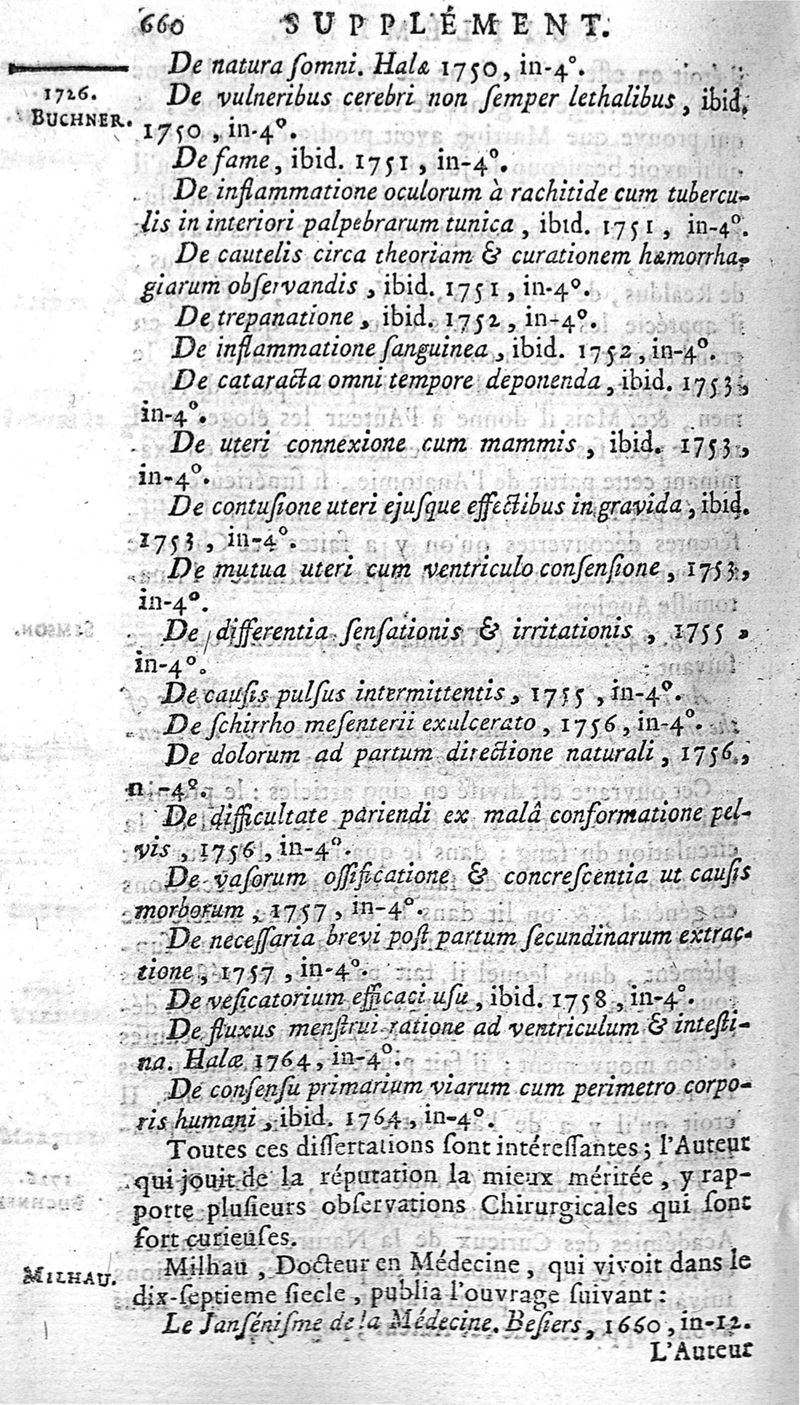 660 SUPPLÉMENT.
De natura ſomni. Halæ 1750, in-4°.
1726.
BUCHNER.
De vulneribus cerebri non ſemper lethalibus, ibid.
1750, in-4°.
De fame, ibid. 1751, in-4°.
De inflammatione oculorum à rachitide cum tubercu-
lis in interiori palpebrarum tunica, ibid. 1751, in-4°.
De cautelis circa theoriam & curationem hæmorrha-
giarum obſervandis, ibid. 1751, in-4°.
De trepanatione, ibid. 1752, in-4°.
De inflammatione ſanguinea, ibid. 1752, in-4°.
De cataracta omni tempore deponenda, ibid. 1753,
in-4°.
De uteri connexione cum mammis, ibid. 1753,
in-4°.
De contuſione uteri ejuſque effectibus in gravida, ibid.
1753, in-4°.
De mutua uteri cum ventriculo conſenſione, 1753,
in-4°.
De differentia ſenſationis & irritationis, 1755,
in-4°.
De cauſis pulſus intermittentis, 1755, in-4°.
De ſchirrho meſenterii exulcerato, 1756, in-4°.
De dolorum ad partum directione naturali, 1756,
n-4°.
De difficultate pariendi ex malâ conformatione pel-
vis, 1756, in-4°.
De vaſorum oſſificatione & concreſcentia ut cauſis
morborum, 1757, in-4°.
De neceſſaria brevi poſt partum ſecundinarum extrac-
tione, 1757, in-4°.
De veſicatorium efficaci uſu, ibid. 1758, in-4°.
De fluxus menſtrui ratione ad ventriculum & inteſti-
na. Halæ 1764, in-4°.
De conſenſu primarium viarum cum perimetro corpo-
ris humani, ibid. 1764, in-4°.
Toutes ces diſſertations ſont intéreſſantes; l'Auteur
qui jouit de la réputation la mieux méritée, y rap-
porte pluſieurs obſervations Chirurgicales qui ſont
fort curieuſes.
MILHAU.
Milhau, Docteur en Médecine, qui vivoit dans le
dix-ſeptieme ſiecle, publia l'ouvrage ſuivant:
Le Janſéniſme de la Médecine. Beſiers, 1660, in-12.
L'Auteur